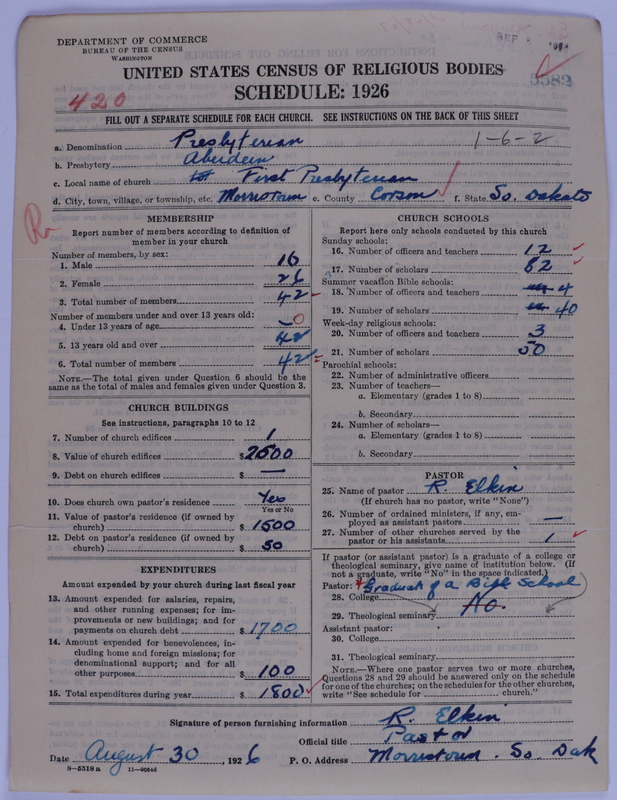 DEPARTMENT OF COMMERCE
BUREAU OF THE CENSUS
WASHINGTON
SEP 8
5582
UNITED STATES CENSUS OF RELIGIOUS BODIES
SCHEDULE: 1926
420
FILL OUT A SEPARATE SCHEDULE FOR EACH CHURCH. SEE INSTRUCTIONS ON THE BACK OF THIS SHEET
1-6-2
a. Denomination Presbyterian
b. Presbytery Aberdeen
c. Local name of church First Presbyterian
d. City, town, village, or township, etc. Morristown e. County Corson f. State So. Dakato
MEMBERSHIP
Report number of members according to definition of
member in your church
Number of members, by sex:
1. Male 16
2. Female 26
3. Total number of members 42
Number of members under and over 13 years old:
4. Under 13 years of age 0
5. 13 years old and over 42
6. Total number of members 42
NOTE.—The total given under Question 6 should be the
same as the total of males and females given under Question 3.
CHURCH BUILDINGS
See instructions, paragraphs 10 to 12
7. Number of church edifices 1
8. Value of church edifices $ 2500
9. Debt on church edifices $ —
10. Does church own pastor's residence Yes
Yes or No
11. Value of pastor's residence (if owned by
church) $ 1500
12. Debt on pastor's residence (if owned by
church) $ 50
EXPENDITURES
Amount expended by your church during last fiscal year
13. Amount expended for salaries, repairs,
and other running expenses; for im-
provements or new buildings; and for
payments on church debt $ 1700
14. Amount expended for benevolences, in-
cluding home and foreign missions; for
denominational support; and for all
other purposes $ 100
15. Total expenditures during year $ 1800
CHURCH SCHOOLS
Report here only schools conducted by this church
Sunday schools:
16. Number of officers and teachers 12
17. Number of scholars 82
Summer vacation Bible schools:
18. Number of officers and teachers 4
19. Number of scholars 40
Week-day religious schools:
20. Number of officers and teachers 3
21. Number of scholars 50
Parochial schools:
22. Number of administrative officers
23. Number of teachers—
a. Elementary (grades 1 to 8)
b. Secondary
24. Number of scholars—
a. Elementary (grades 1 to 8)
b. Secondary
PASTOR
25. Name of pastor R. Elkin
(If church has no pastor, write "None")
26. Number of ordained ministers, if any, em-
ployed as assistant pastors —
27. Number of other churches served by the
pastor or his assistants 1
If pastor (or assistant pastor) is a graduate of a college or
theological seminary, give name of institution below. (If
not a graduate, write "No" in the space indicated.)
Pastor: *Graduate of a Bible School
28. College
No.
29. Theological seminary
Assistant pastor:
30. College
31. Theological seminary
NOTE.—Where one pastor serves two or more churches,
Questions 28 and 29 should be answered only on the schedule
for one of the churches; on the schedules for the other churches,
write "See schedule for church."
Signature of person furnishing information R. Elkin
Official title Pastor
Date August 30, 1926 P. O. Address Morristown. So. Dak
8—5518a 11—9054d